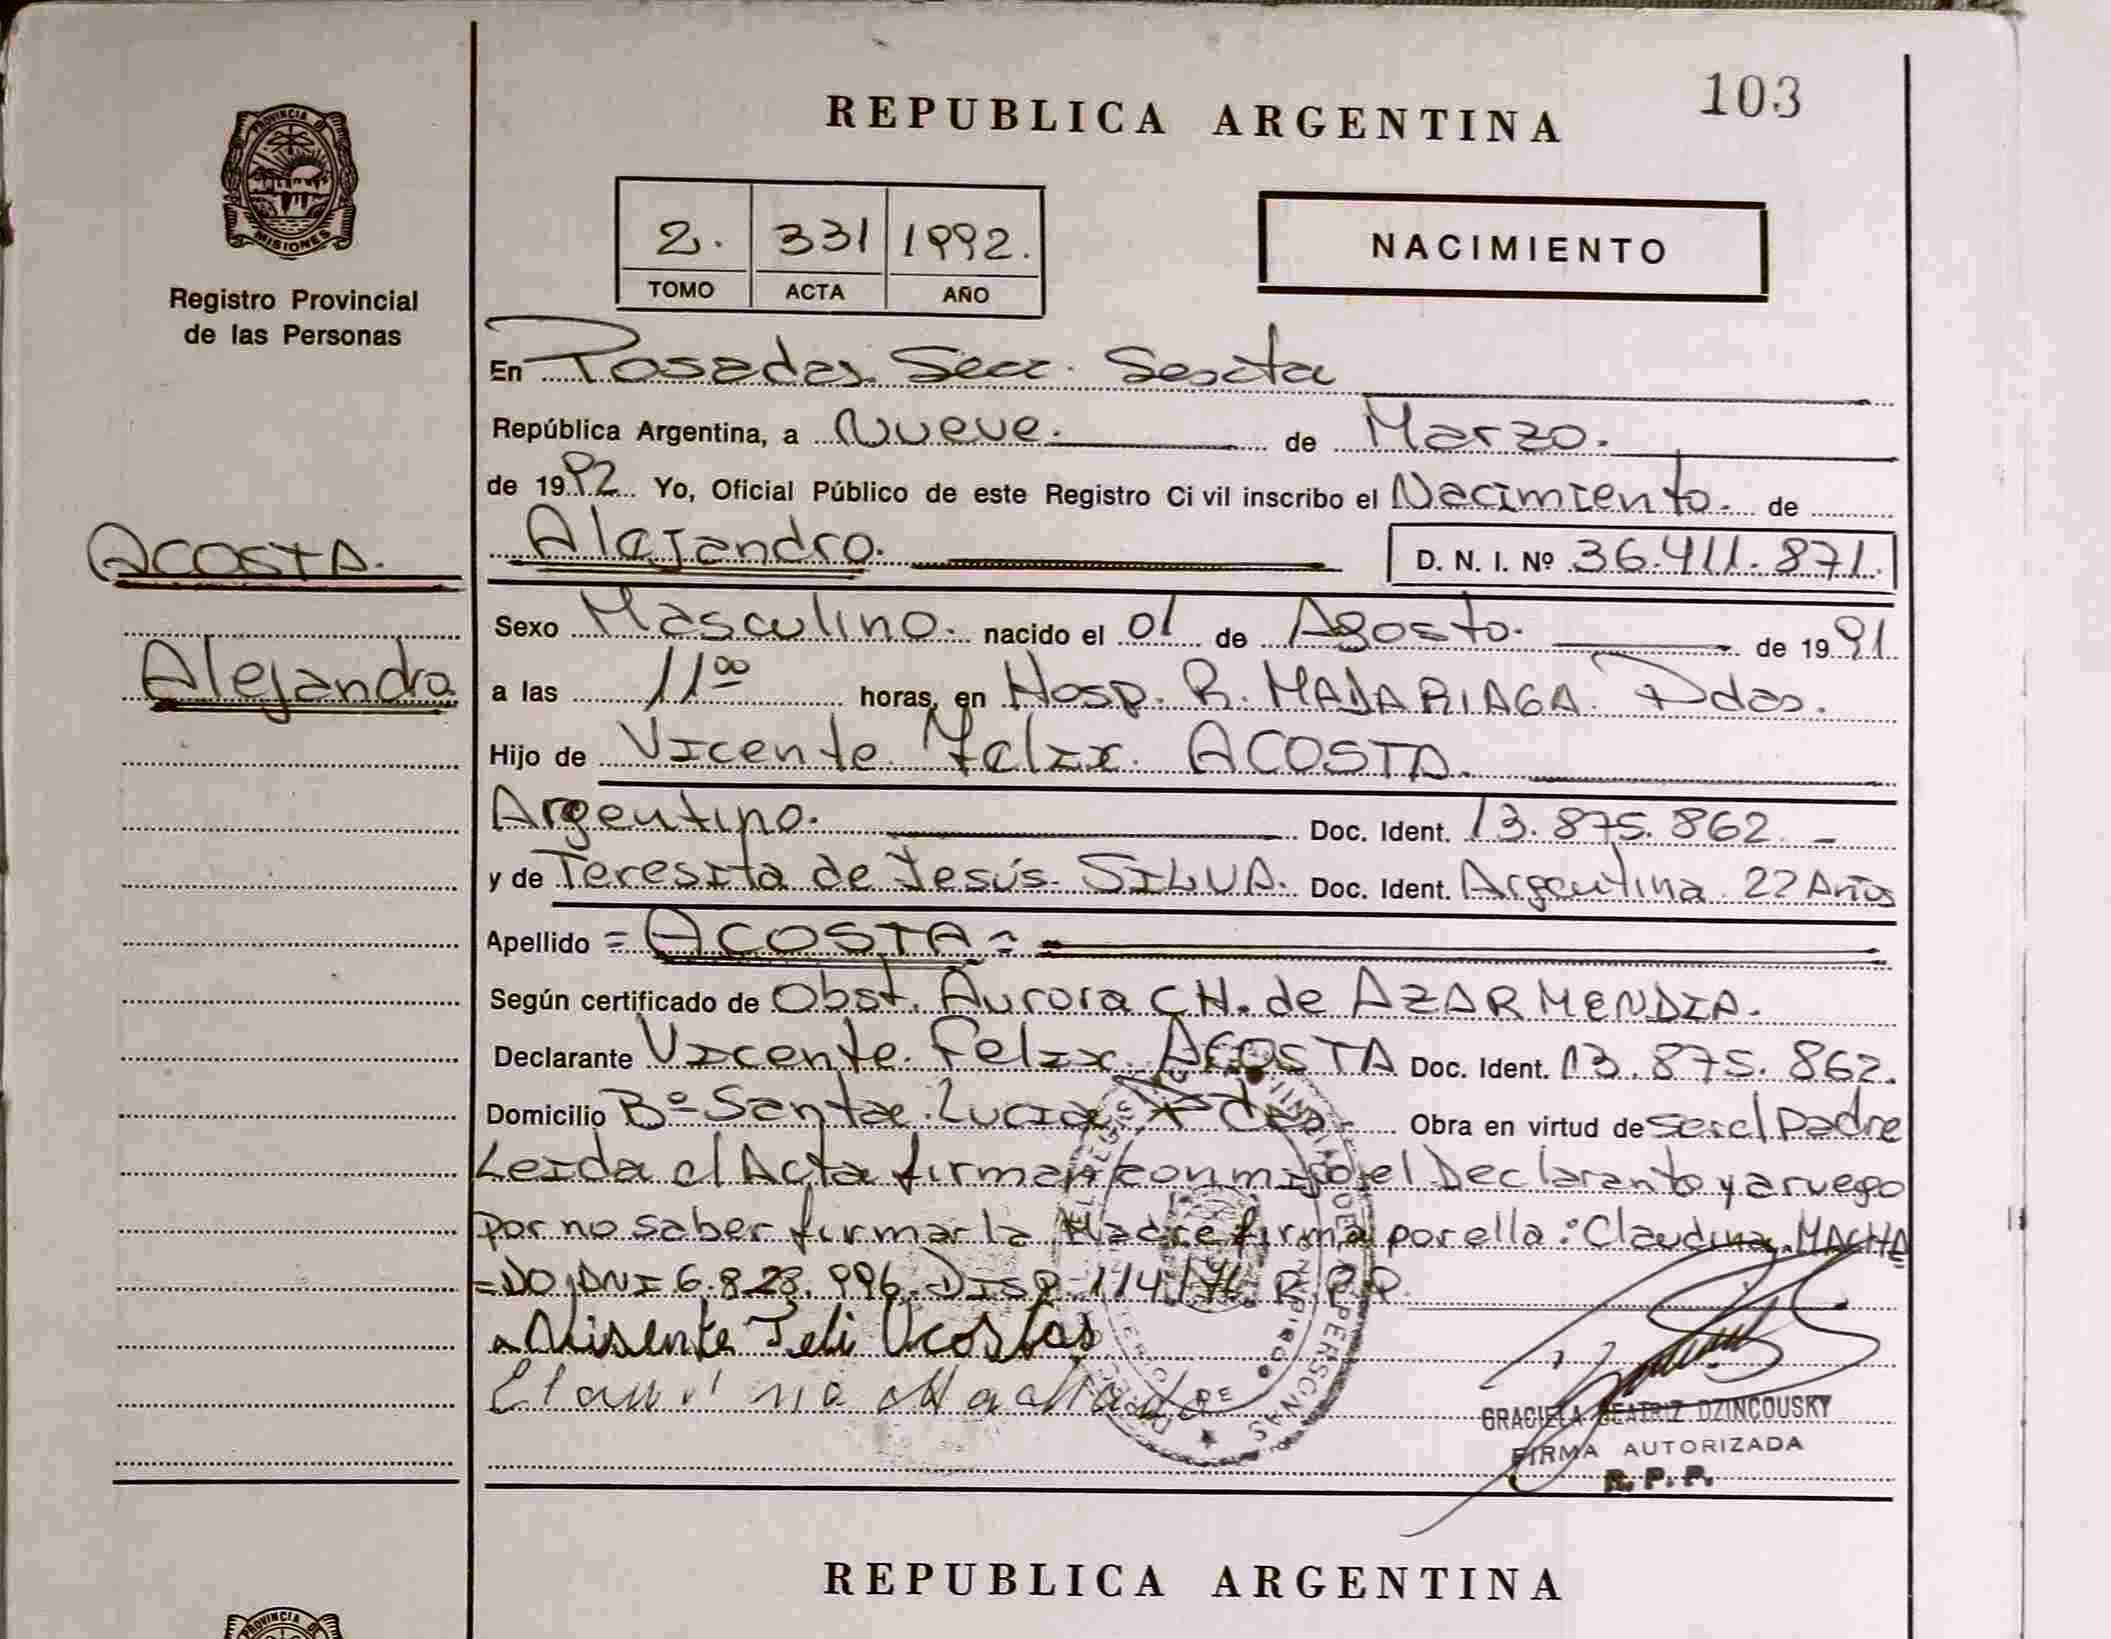 REPUBLICA ARGENTINA
103
PROVINCIA DE
MISIONES
Registro Provincial
de las Personas
2. 331 1992.
TOMO ACTA AÑO
NACIMIENTO
En Posadas. Secc. Sexta
República Argentina, a Nueve. de Marzo.
de 1992. Yo, Oficial Público de este Registro Civil inscribo el Nacimiento. de
Alejandro. D. N. I. Nº 36.411.871.
ACOSTA.
Alejandro
Sexo Masculino. nacido el 01 de Agosto. de 1991
a las 11 00 horas, en Hosp. R. MADARIAGA. Pdas.
Hijo de Vicente Felix. ACOSTA.
Argentino. Doc. Ident. 13.875.862. -
y de Teresita de Jesús. SILVA. Doc. Ident. Argentina 22 Años
Apellido = ACOSTA =
Según certificado de Obst. Aurora CH. de AZARMENDIA.
Declarante Vicente. Felix. ACOSTA Doc. Ident. 13.875.862.
Domicilio Bº Santa Lucia Pdas Obra en virtud de ser el Padre
Leida el Acta firman conmigo el Declarante y a ruego
por no saber firmar la Madre firma por ella: Claudina MACHA
=DO DNI 6.823.996. Disp. 114/76. R.P.P.
Visente Feli Acostas
Claudina Machado
GRACIELA BEATRIZ DZINCOUSKY
FIRMA AUTORIZADA
R. P. P.
REPUBLICA ARGENTINA
PROVINCIA DE